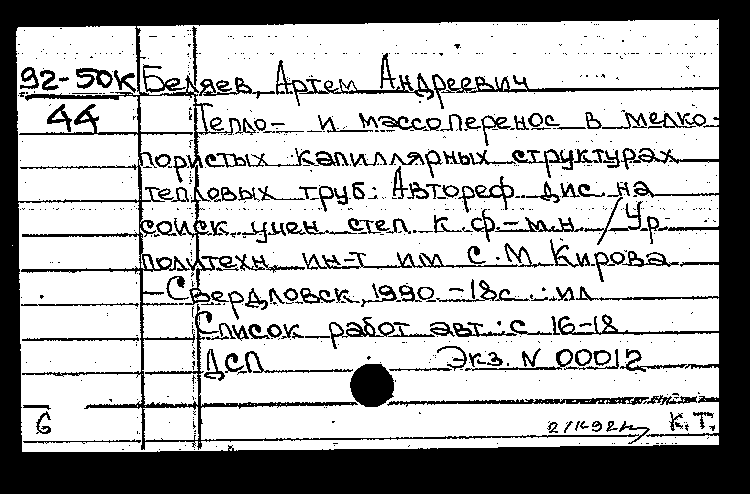 92-50к Беляев, Артем Андреевич
44 Тепло- и массоперенос в мелко-
пористых капиллярных структурах
тепловых труб: Автореф. дис. на
соиск. учен. степ. к. ф.-м.н. / Ур.
политехн. ин-т им. С.М. Кирова.
—Свердловск, 1990.-18с.:ил.
Список работ авт.:с 16-18.
ДСП Экз. N 00012
6 К.Т.